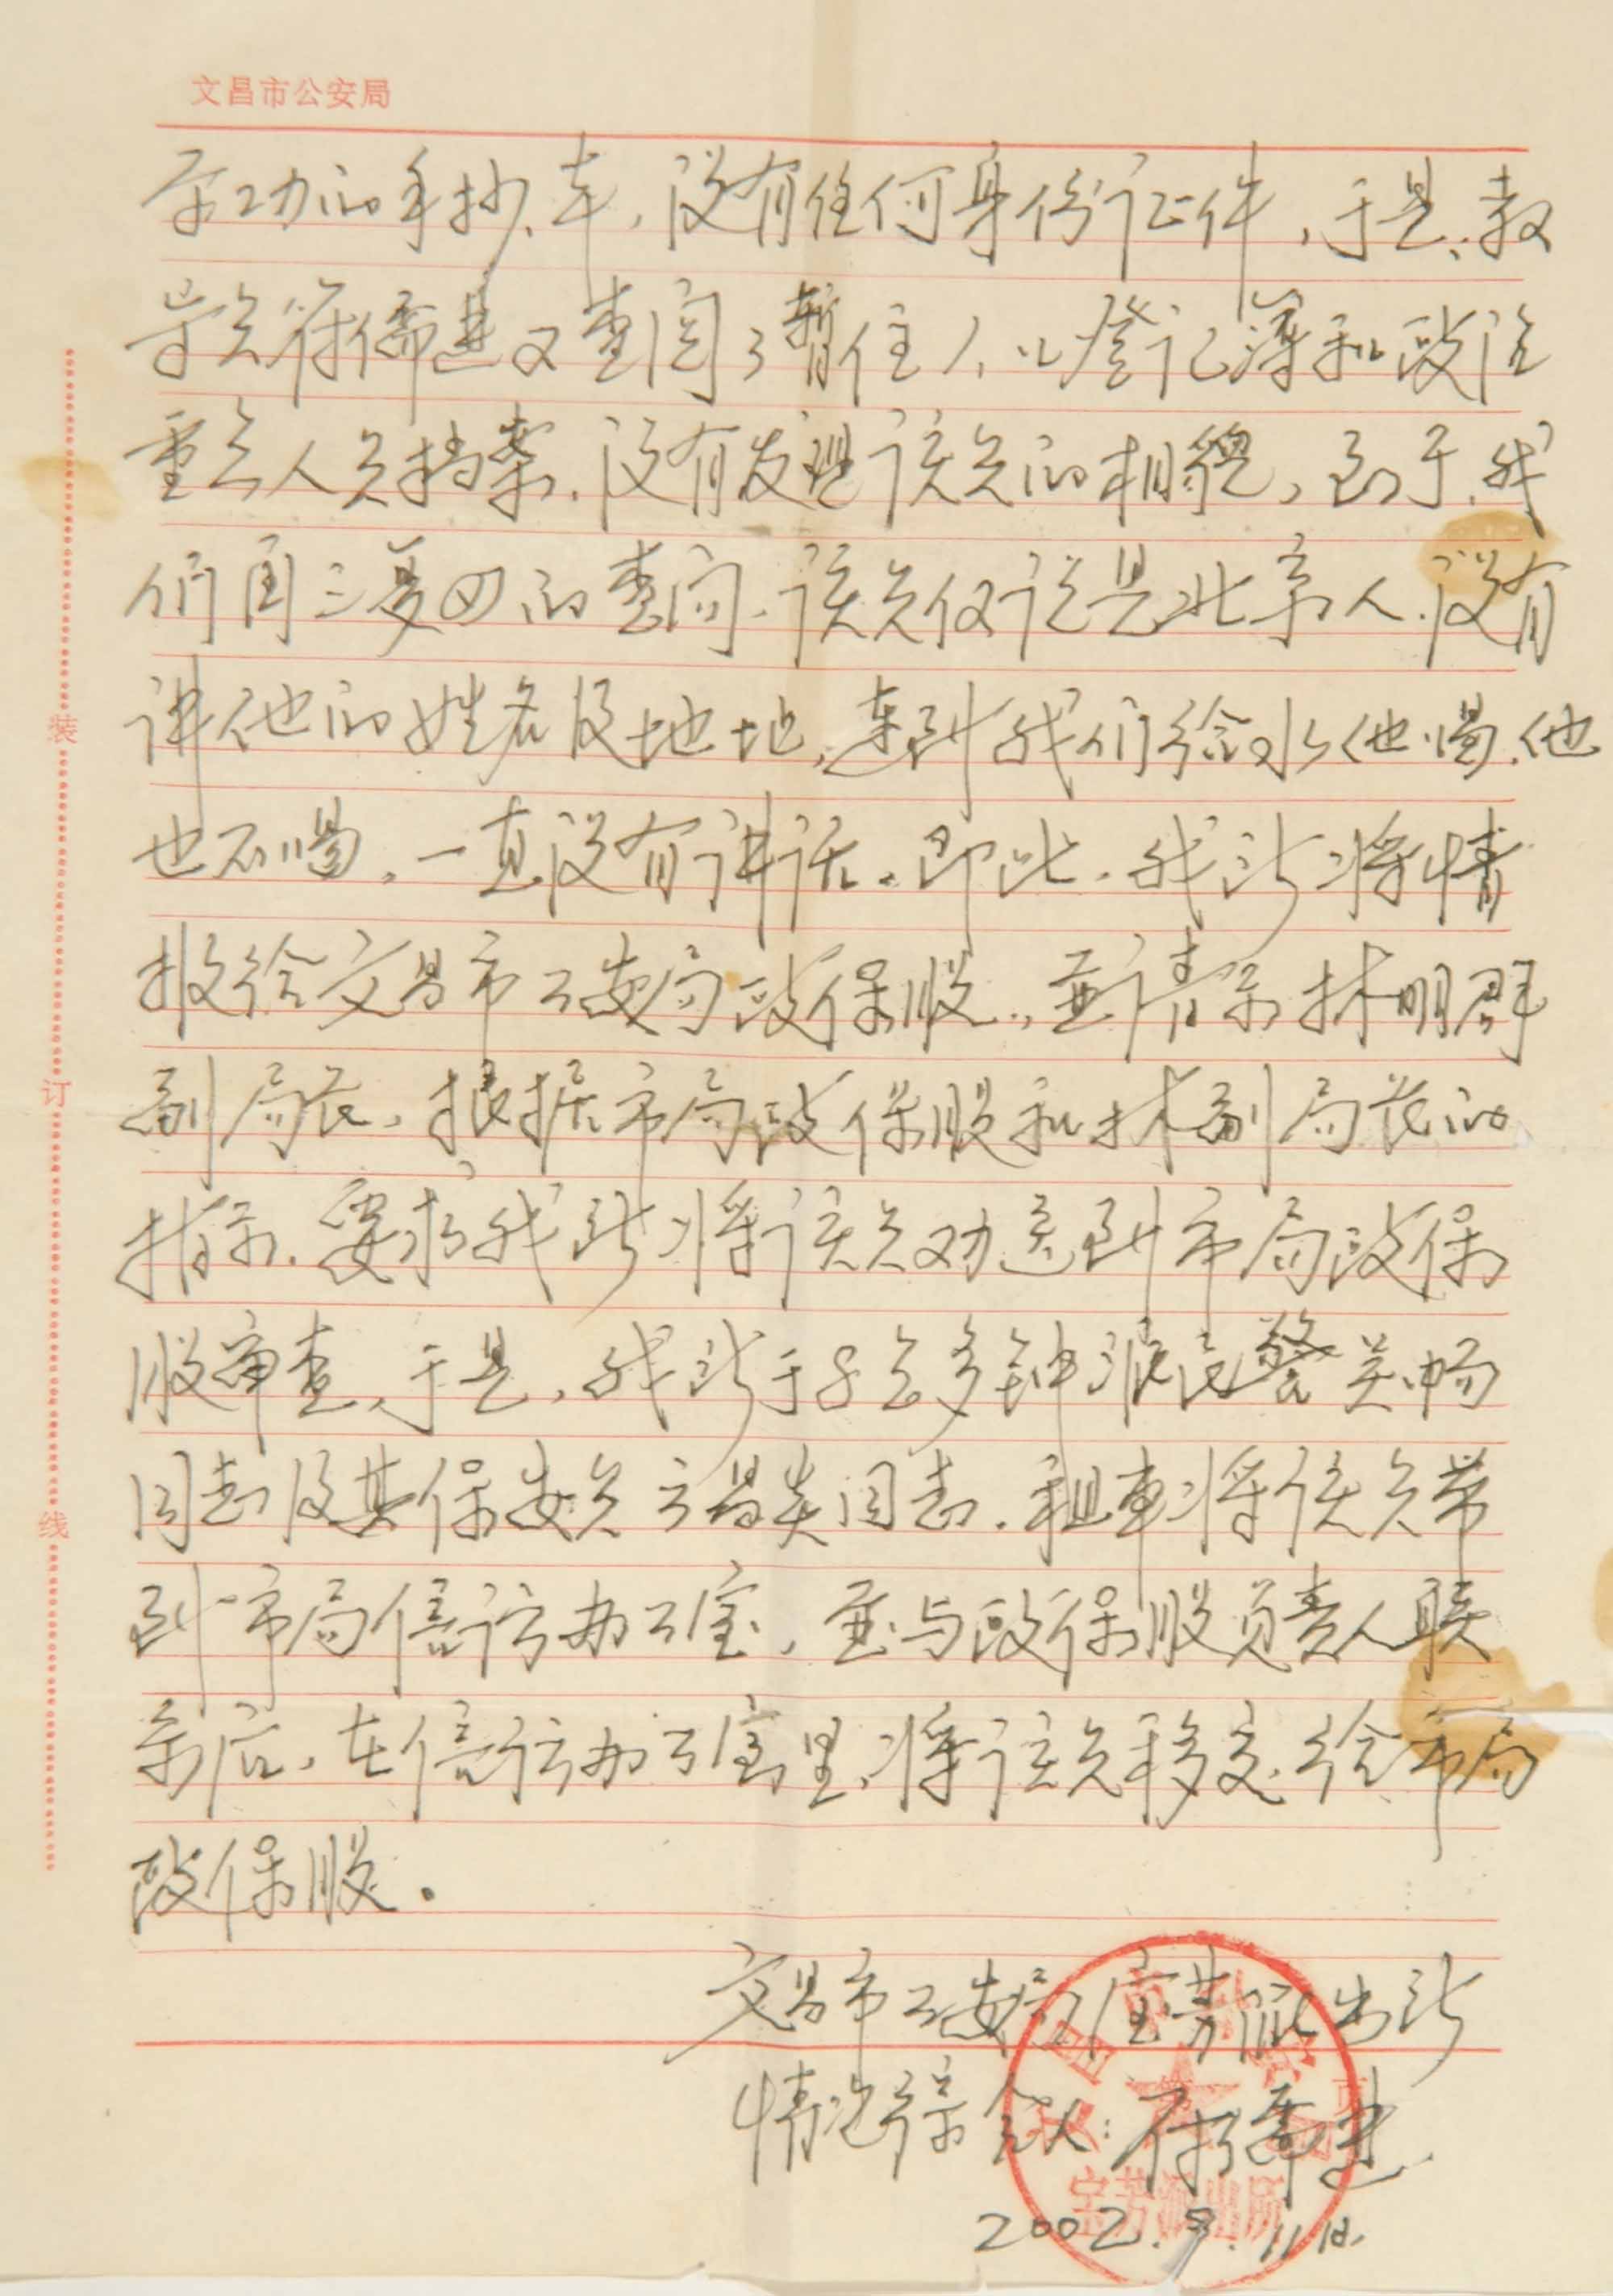 文昌市公安局
字功的手抄本，没有任何身份证件，于是，教
导员符儒进又查阅了暂住人口登记簿和政治
重点人员档案，没有发现该员的相貌，至于，我
们再三多四的查问，该员仅说是北京人，没有
讲他的姓名及地址，连到我们给水他喝，他
也不喝，一直没有讲话。即此，我所将情
报给文昌市公安局政保股，并请示林明群
副局长，根据市局政保股和林副局长的
指示，要求我所将该员劝送到市局政保
股审查，于是，我所于8点多钟派民警关畅
同志及其保安员云昌英同志，租车将该员带
到市局信访办公室，并与政保股负责人联
系后，在信访办公室里，将该员移交给市局
政保股。
文昌市公安局宝芳派出所
情况综合人：符儒进
2002.9.11日
宝芳派出所
装
订
线